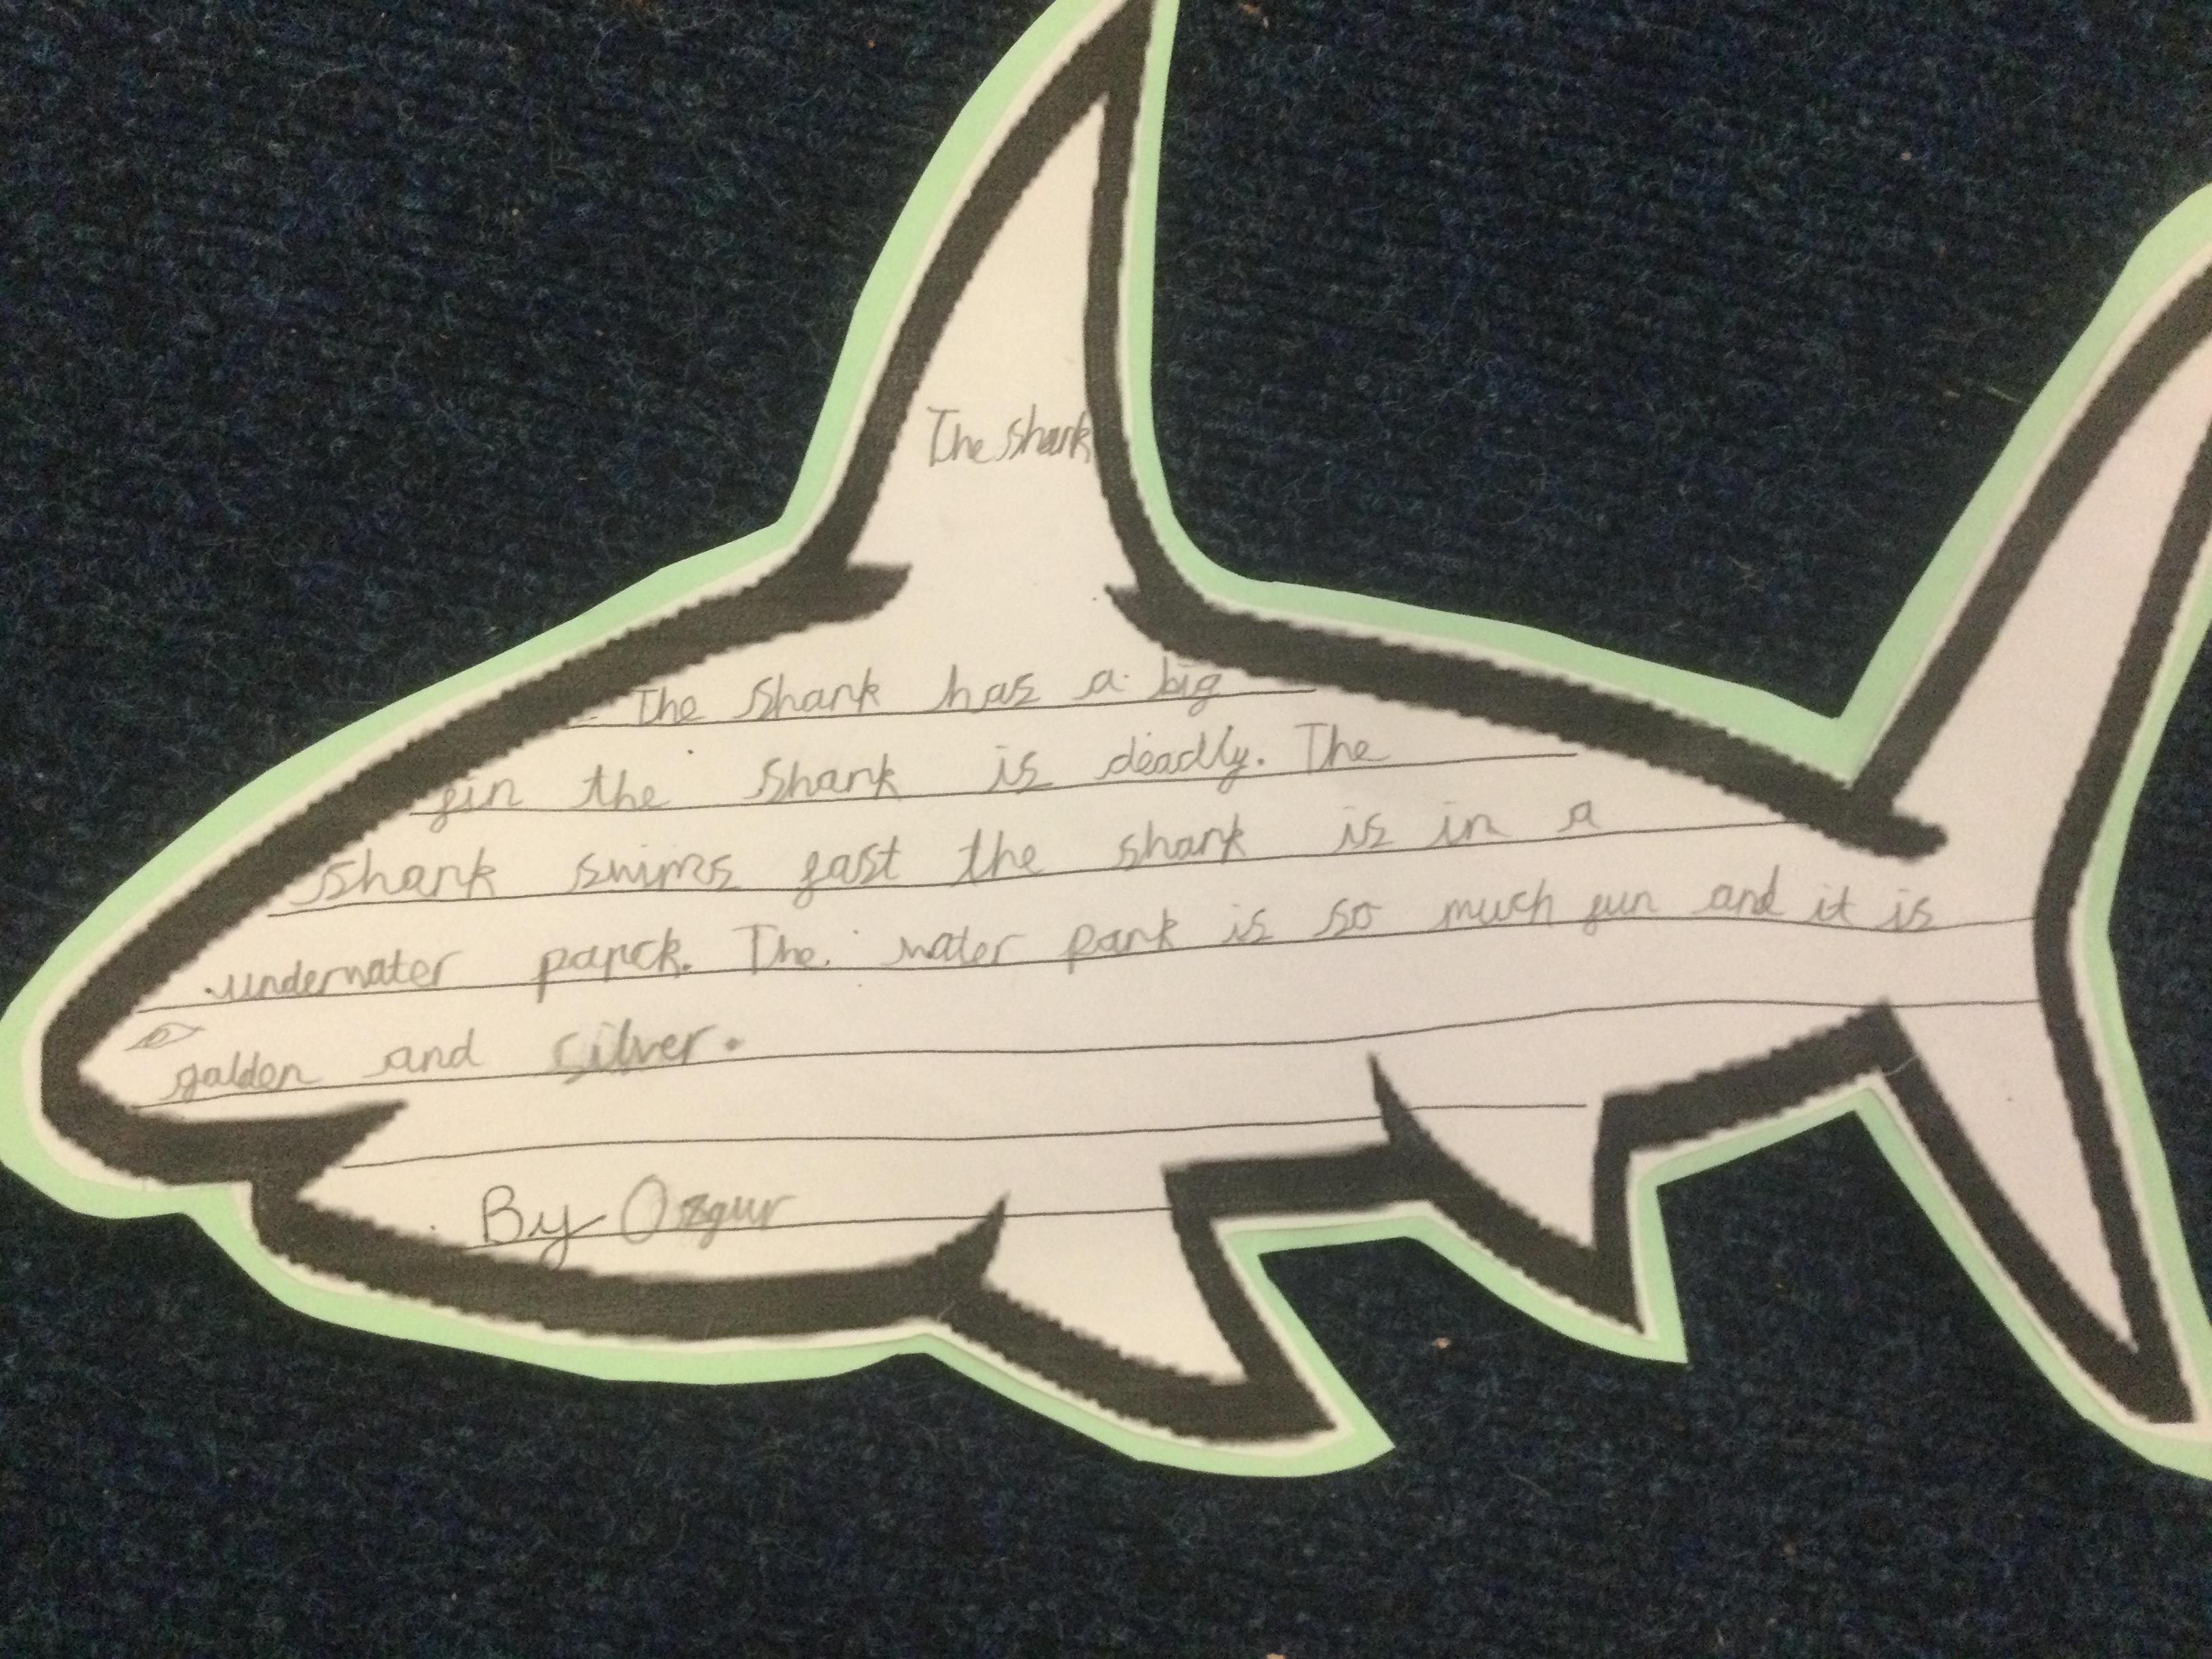 The shark
The shark has a big
fin the shark is deadly. The
shark swims fast the shark is in a
underwater parck. The water park is so much fun and it is
golden and silver.
By Ozgur